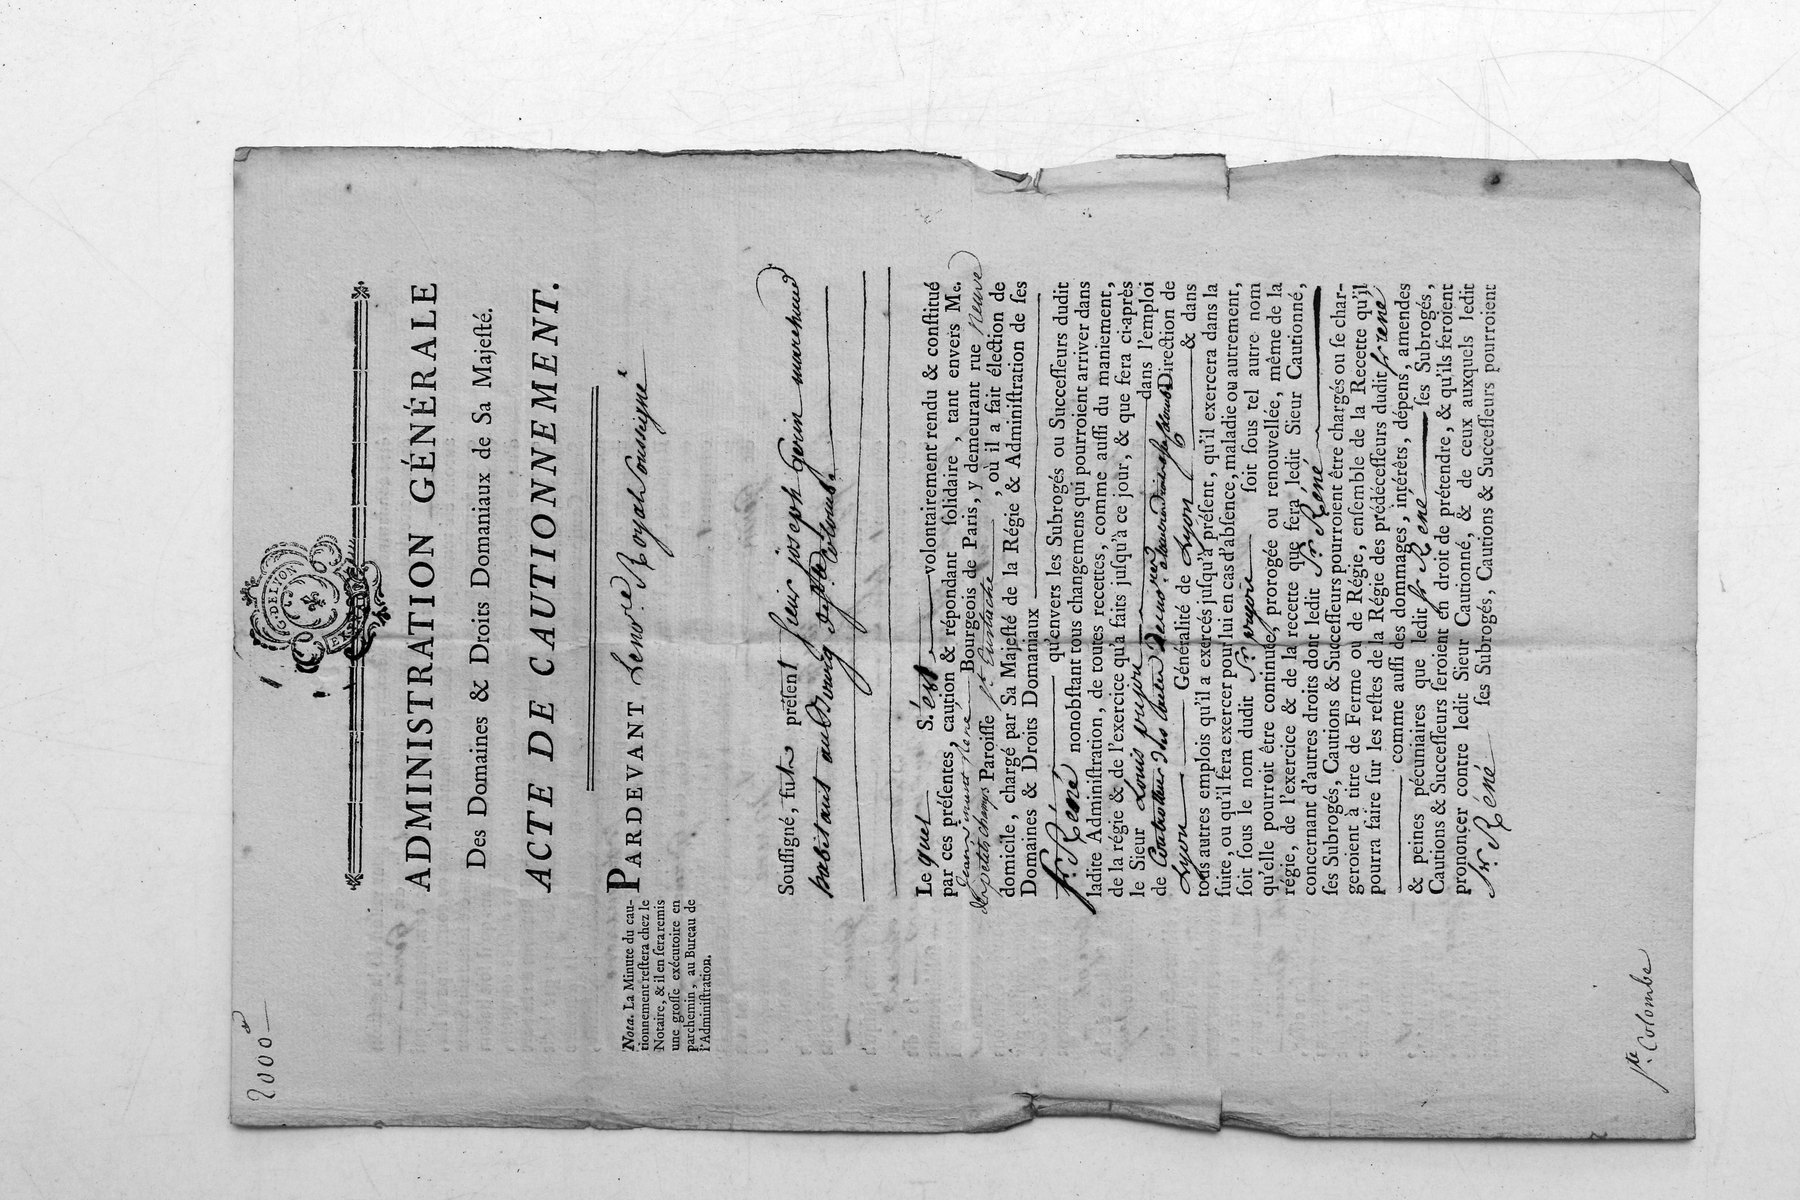 2000
G. DELYON
EXTRAO
ADMINISTRATION GÉNÉRALE
Des Domaines & Droits Domaniaux de Sa Majeſté.
ACTE DE CAUTIONNEMENT.
Nota. La Minute du cau-
tionnement reſtera chez le
Notaire, & il en ſera remis
une groſſe exécutoire en
parchemin, au Bureau de
l'Adminiſtration.
PARDEVANT Le no.re Royal soussigné
Souſſigné, fut préſent sieur joseph Genin marchand
habitant au Bourg de ste Colombe
Le quel S'est volontairement rendu & conſtitué
par ces préſentes, caution & répondant ſolidaire, tant envers Me.
Jean vincent René Bourgeois de Paris, y demeurant rue Neuve
des petits champs Paroiſſe st Eustache, où il a fait élection de
domicile, chargé par Sa Majeſté de la Régie & Adminiſtration de ſes
Domaines & Droits Domaniaux
qu'envers les Subrogés ou Succeſſeurs dudit
Sr. René nonobſtant tous changemens qui pourroient arriver dans
ladite Adminiſtration, de toutes recettes, comme auſſi du maniement,
de la régie & de l'exercice qu'a faits juſqu'à ce jour, & que fera ci-après
le Sieur Louis dans l'emploi
de Controlleur des Direction de
Lyon Généralité de Lyon & dans
tous autres emplois qu'il a exercés juſqu'à préſent, qu'il exercera dans la
ſuite, ou qu'il fera exercer pour lui en cas d'abſence, maladie ou autrement,
ſoit ſous le nom dudit Sr. ſoit ſous tel autre nom
qu'elle pourroit être continuée, prorogée ou renouvellée, même de la
régie, de l'exercice & de la recette que fera ledit Sieur Cautionné,
concernant d'autres droits dont ledit Sr. René
ſes Subrogés, Cautions & Succeſſeurs pourroient être chargés ou ſe char-
geroient à titre de Ferme ou de Régie, enſemble de la Recette qu'il
pourra faire ſur les reſtes de la Régie des prédéceſſeurs dudit Sr René
comme auſſi des dommages, intérêts, dépens, amendes
& peines pécuniaires que ledit Sr René ſes Subrogés,
Cautions & Succeſſeurs ſeroient en droit de prétendre, & qu'ils feroient
prononçer contre ledit Sieur Cautionné, & de ceux auxquels ledit
Sr. René ſes Subrogés, Cautions & Succeſſeurs pourroient
Ste. Colombe